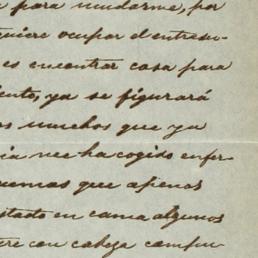 para mudarme, por
quiere ocupar el entresue-
es encontrar casa para
ento, ya se figurará
os muchos que ya
ia me ha cogido enfer-
nemas que apenas
estado en cama algunos
ere con cabeza